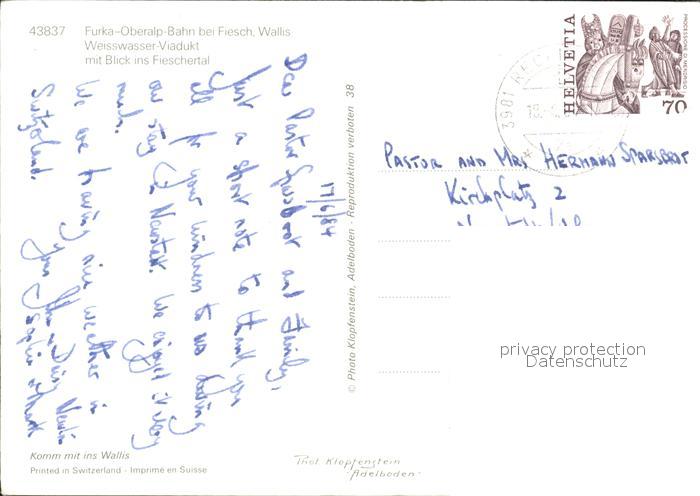 43837 Furka-Oberalp-Bahn bei Fiesch, Wallis
Weisswasser-Viadukt
mit Blick ins Fieschertal
17/6/84
Dear Pastor Sparsbrot and Family,
Just a short note to thank you
all for your kindness to us during
our stay in Neustadt. We enjoyed it very
much.
We are having nice weather in
Switzerland.
Komm mit ins Wallis
Printed in Switzerland - Imprimé en Suisse
© Photo Klopfenstein, Adelboden - Reproduktion verboten 38
Phot. Klopfenstein
-Adelboden-
3981
HELVETIA
70
PASTOR AND MRS HERMANN SPARSBROT
Kirchplatz 2
privacy protection
Datenschutz